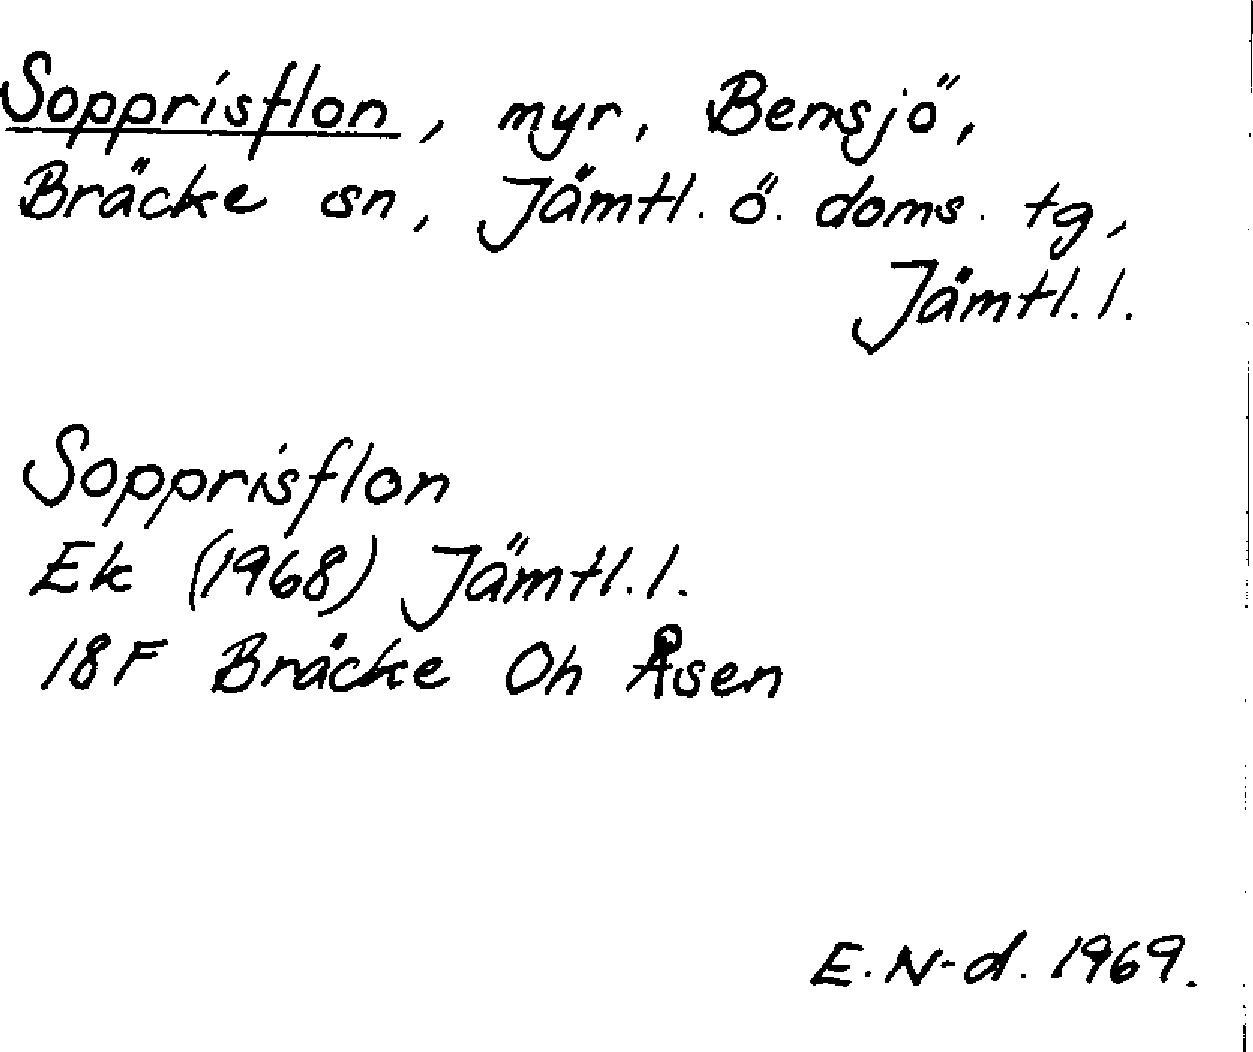 Sopprisflon, myr, Bensjö,
Bräcke sn, Jämtl. ö. doms. tg,
Jämtl. l.
Sopprisflon
Ek (1968) Jämtl. l.
18F Bräcke Oh Åsen
E. N-d. 1969.